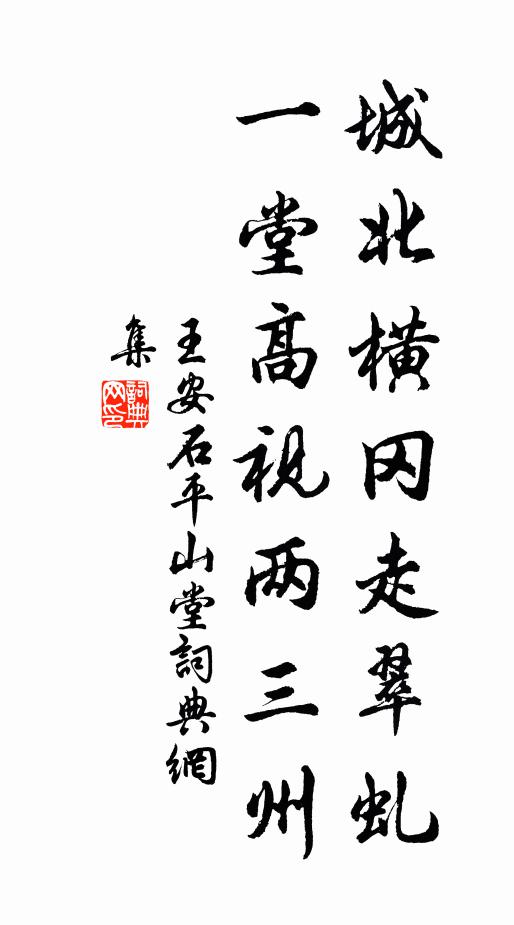 城北横冈走翠虬
一堂高视两三州
王安石平山堂詞典網
集
詞典
网印